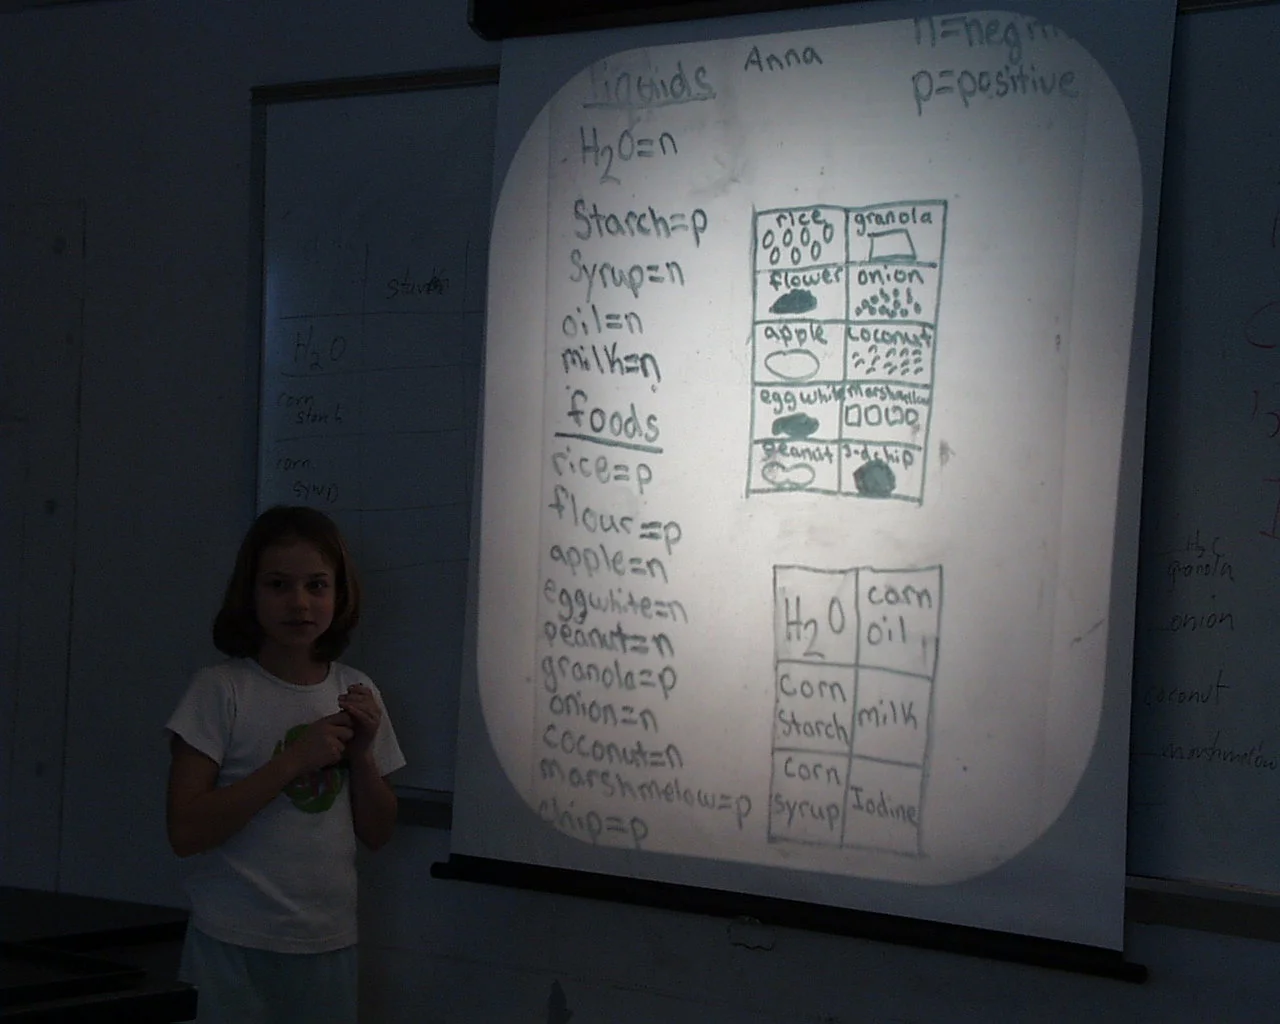 Anna
liquids
p=positive
H2O=n
Starch=p
Syrup=n
oil=n
milk=n
foods
rice=p
flour=p
apple=n
eggwhite=n
peanut=n
granola=p
onion=n
coconut=n
marshmelow=p
chip=p
rice granola
flower onion
apple coconut
egg white marshmellow
peanut
H2O corn oil
corn Starch milk
corn syrup Iodine
H2O
corn
starch
corn
syrup
granola
onion
coconut
marshmelow